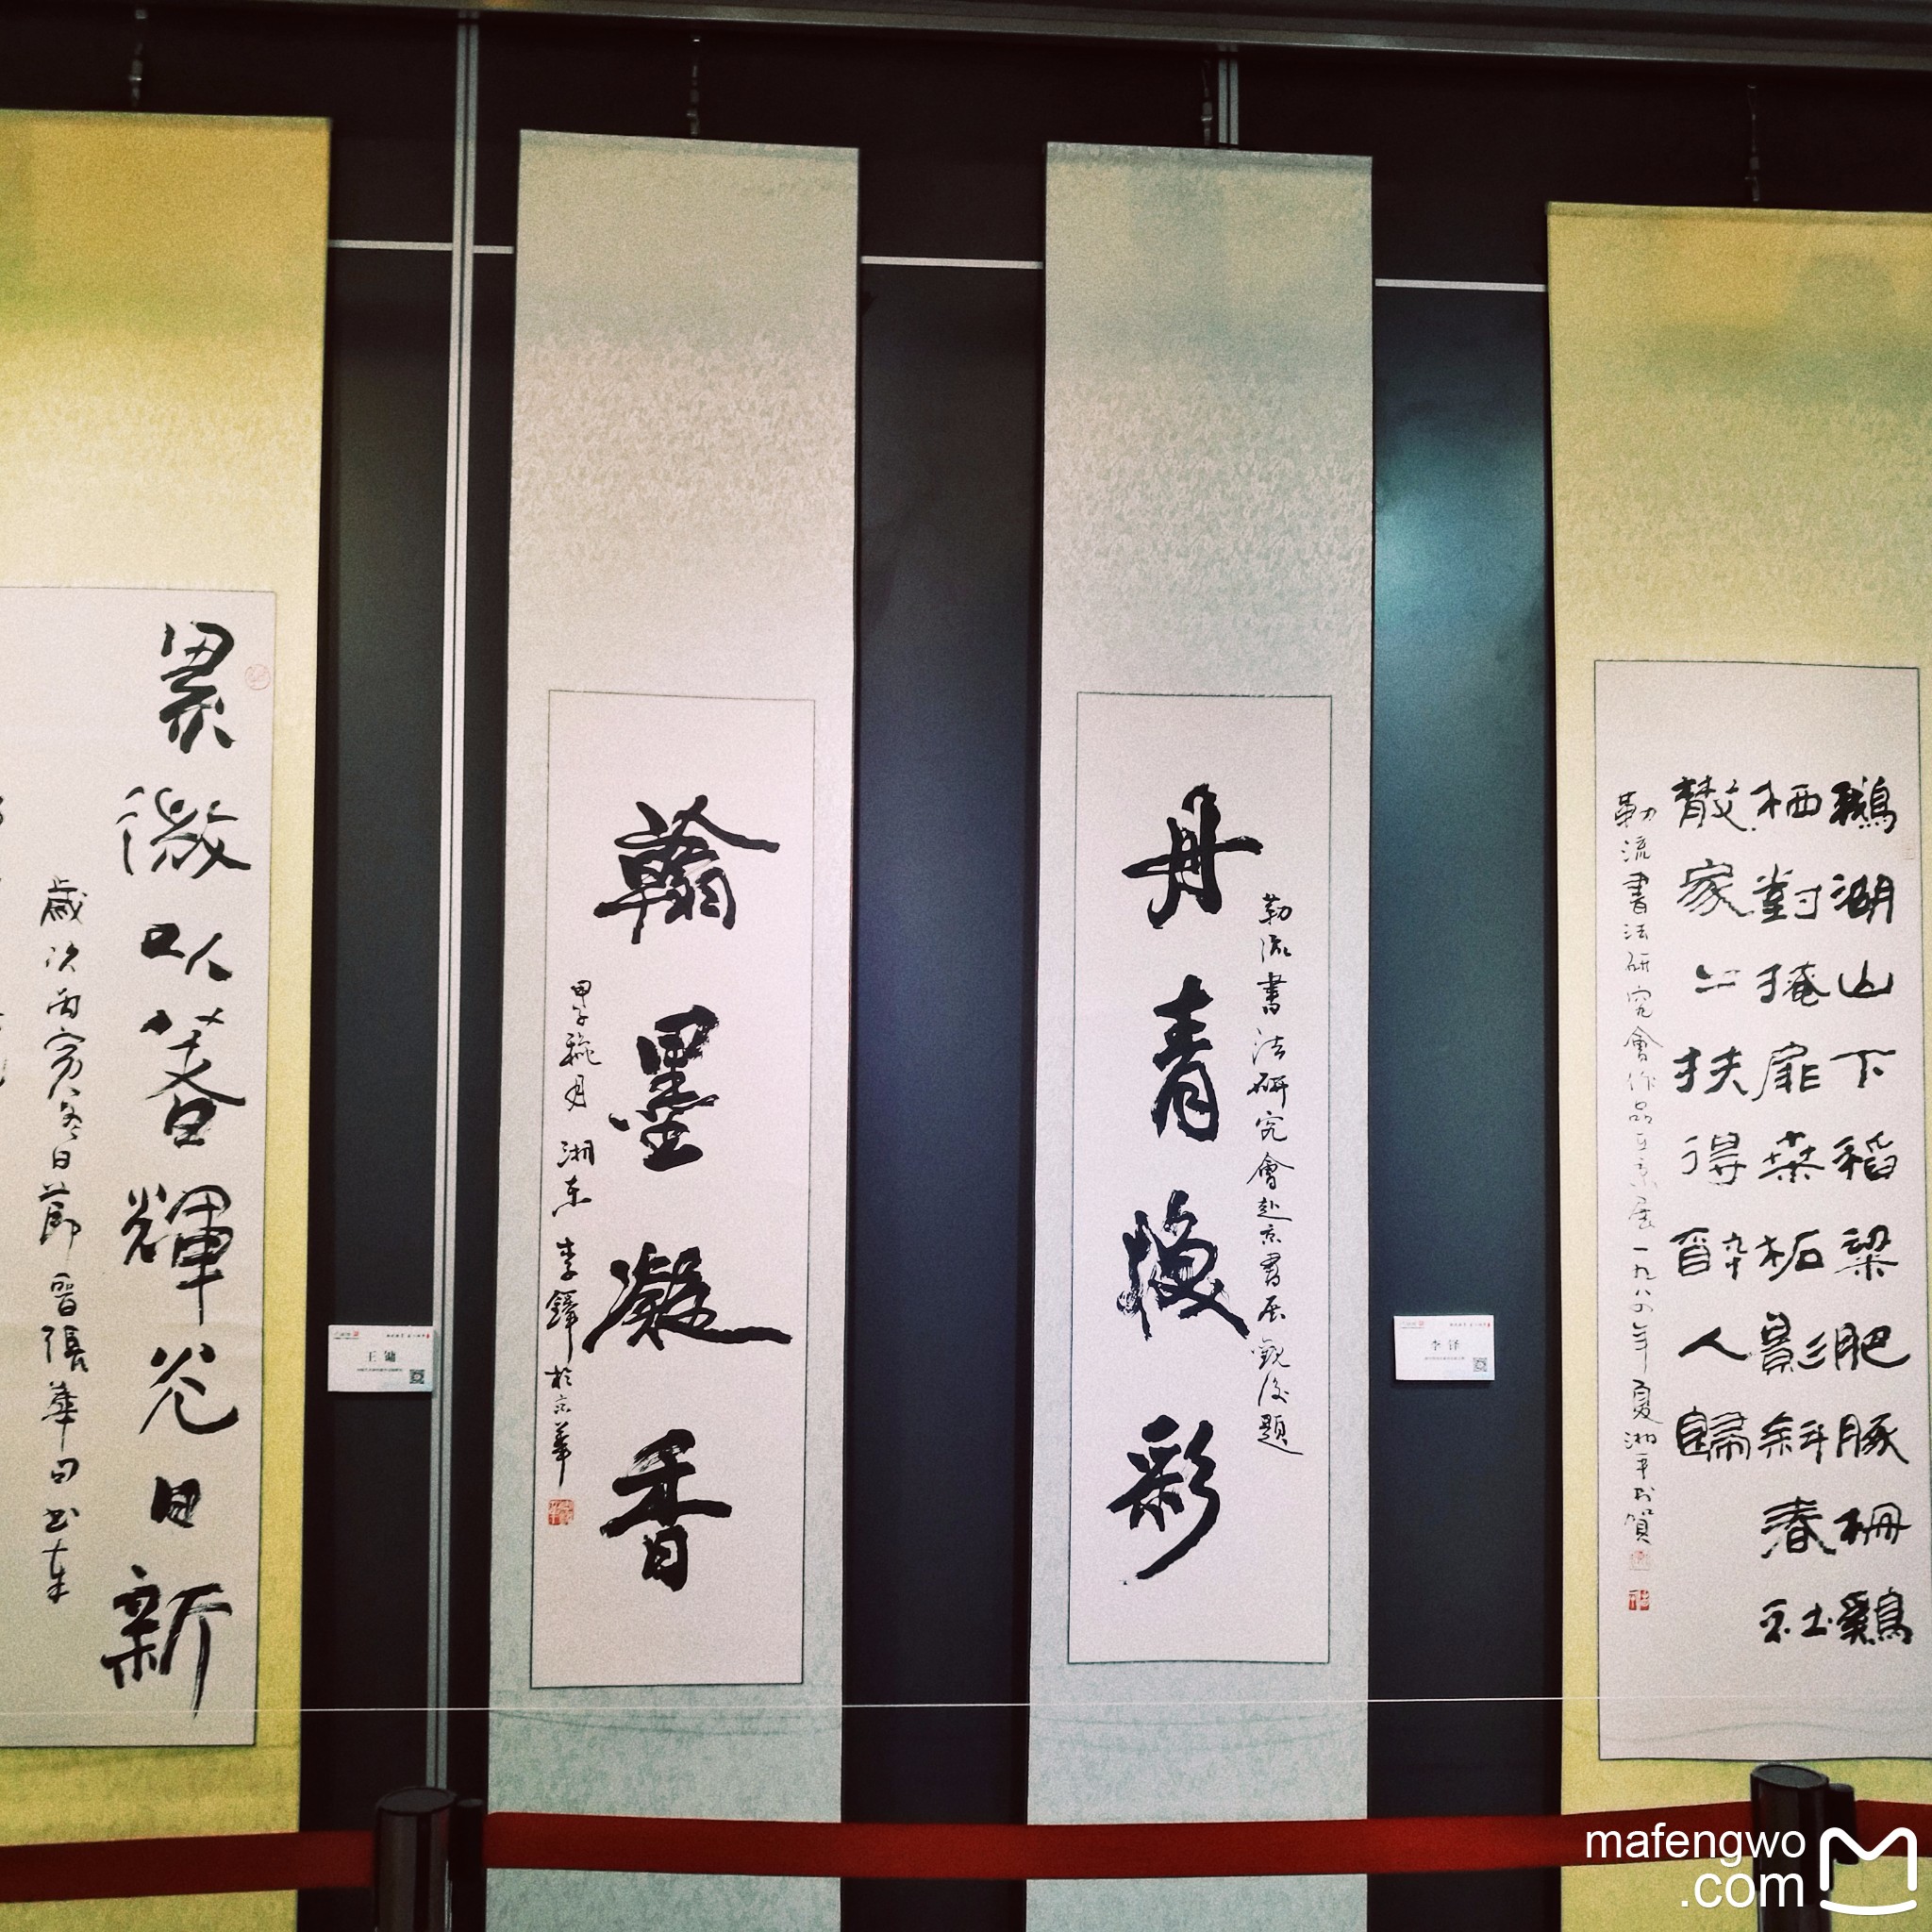 鵝湖山下稻粱肥豚柵鷄
栖對掩扉桑柘影斜春社
散家々扶得醉人歸
勒流書法研究會作品在京展一九八四年夏湘平书賀
勒流書法研究會赴京書展觀後題
丹青煥彩
翰墨凝香
甲子秋月 湘东 李鐸於京華
累微以著輝光日新
歲次丙寅冬日節晋張華句
李铎
王镛
mafengwo
.com